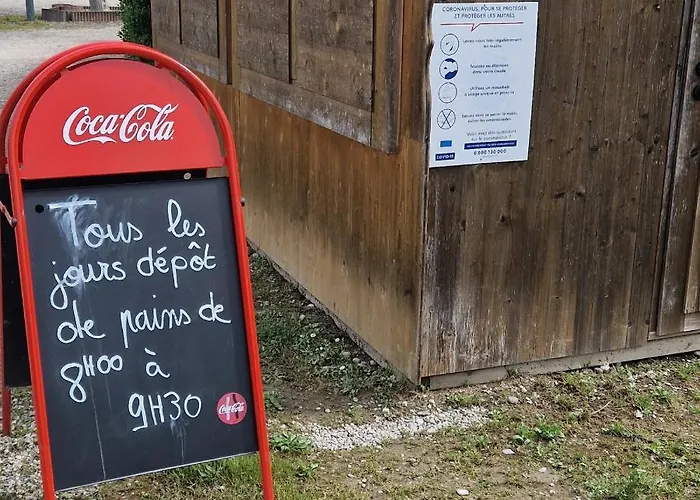 Coca-Cola
Tous les
jours dépôt
de pains de
8H00 à
9H30
Coca-Cola
CORONAVIRUS, POUR SE PROTÉGER
ET PROTÉGER LES AUTRES
Se laver
régulièrement
les mains
Tousser ou éternuer
dans votre coude
Utiliser un mouchoir
à usage unique et le jeter
Saluer sans se serrer la main,
éviter les embrassades
0 800 130 000
COVID-19